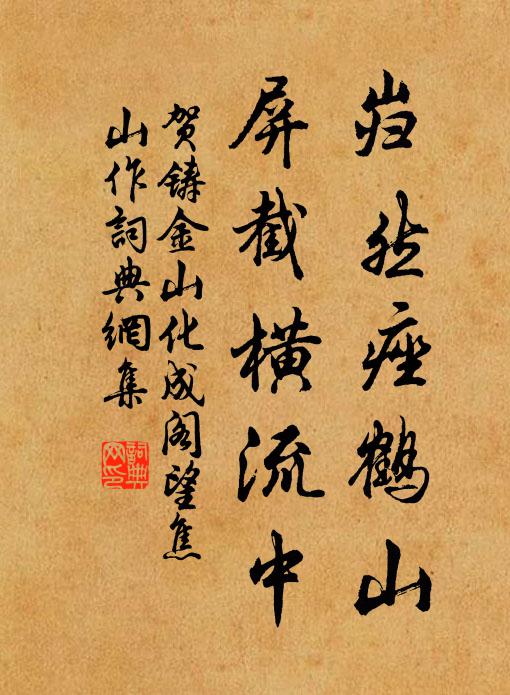 岿然瘗鹤山
屏截横流中
贺铸金山化成阁望焦
山作詞典網集
詞典
网印